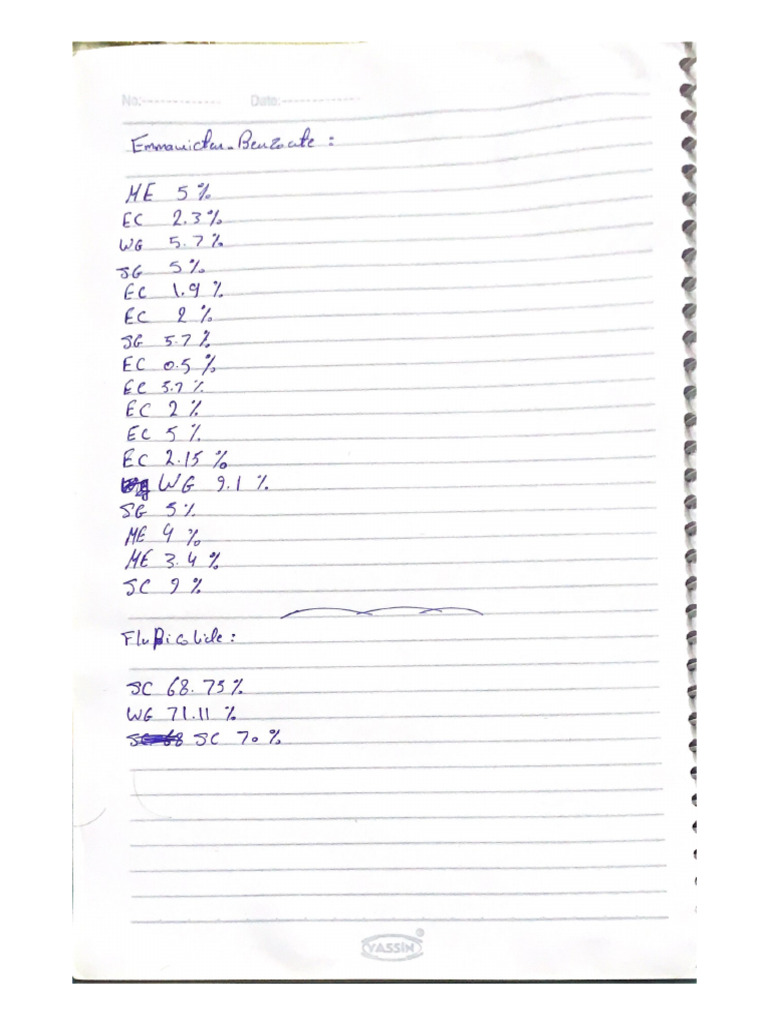 No:-------------- Date:--------------
Emmamicten-Benzoate :
ME 5 %
EC 2.3 %
WG 5.7 %
SG 5 %
EC 1.9 %
EC 2 %
SG 5.7 %
EC 0.5 %
EC 5.7 %
EC 2 %
EC 5 %
EC 2.15 %
WG 9.1 %
SG 5 %
ME 4 %
ME 3.4 %
SC 9 %
Flupicolide :
SC 68.75 %
WG 71.11 %
SC 70 %
YASSIN